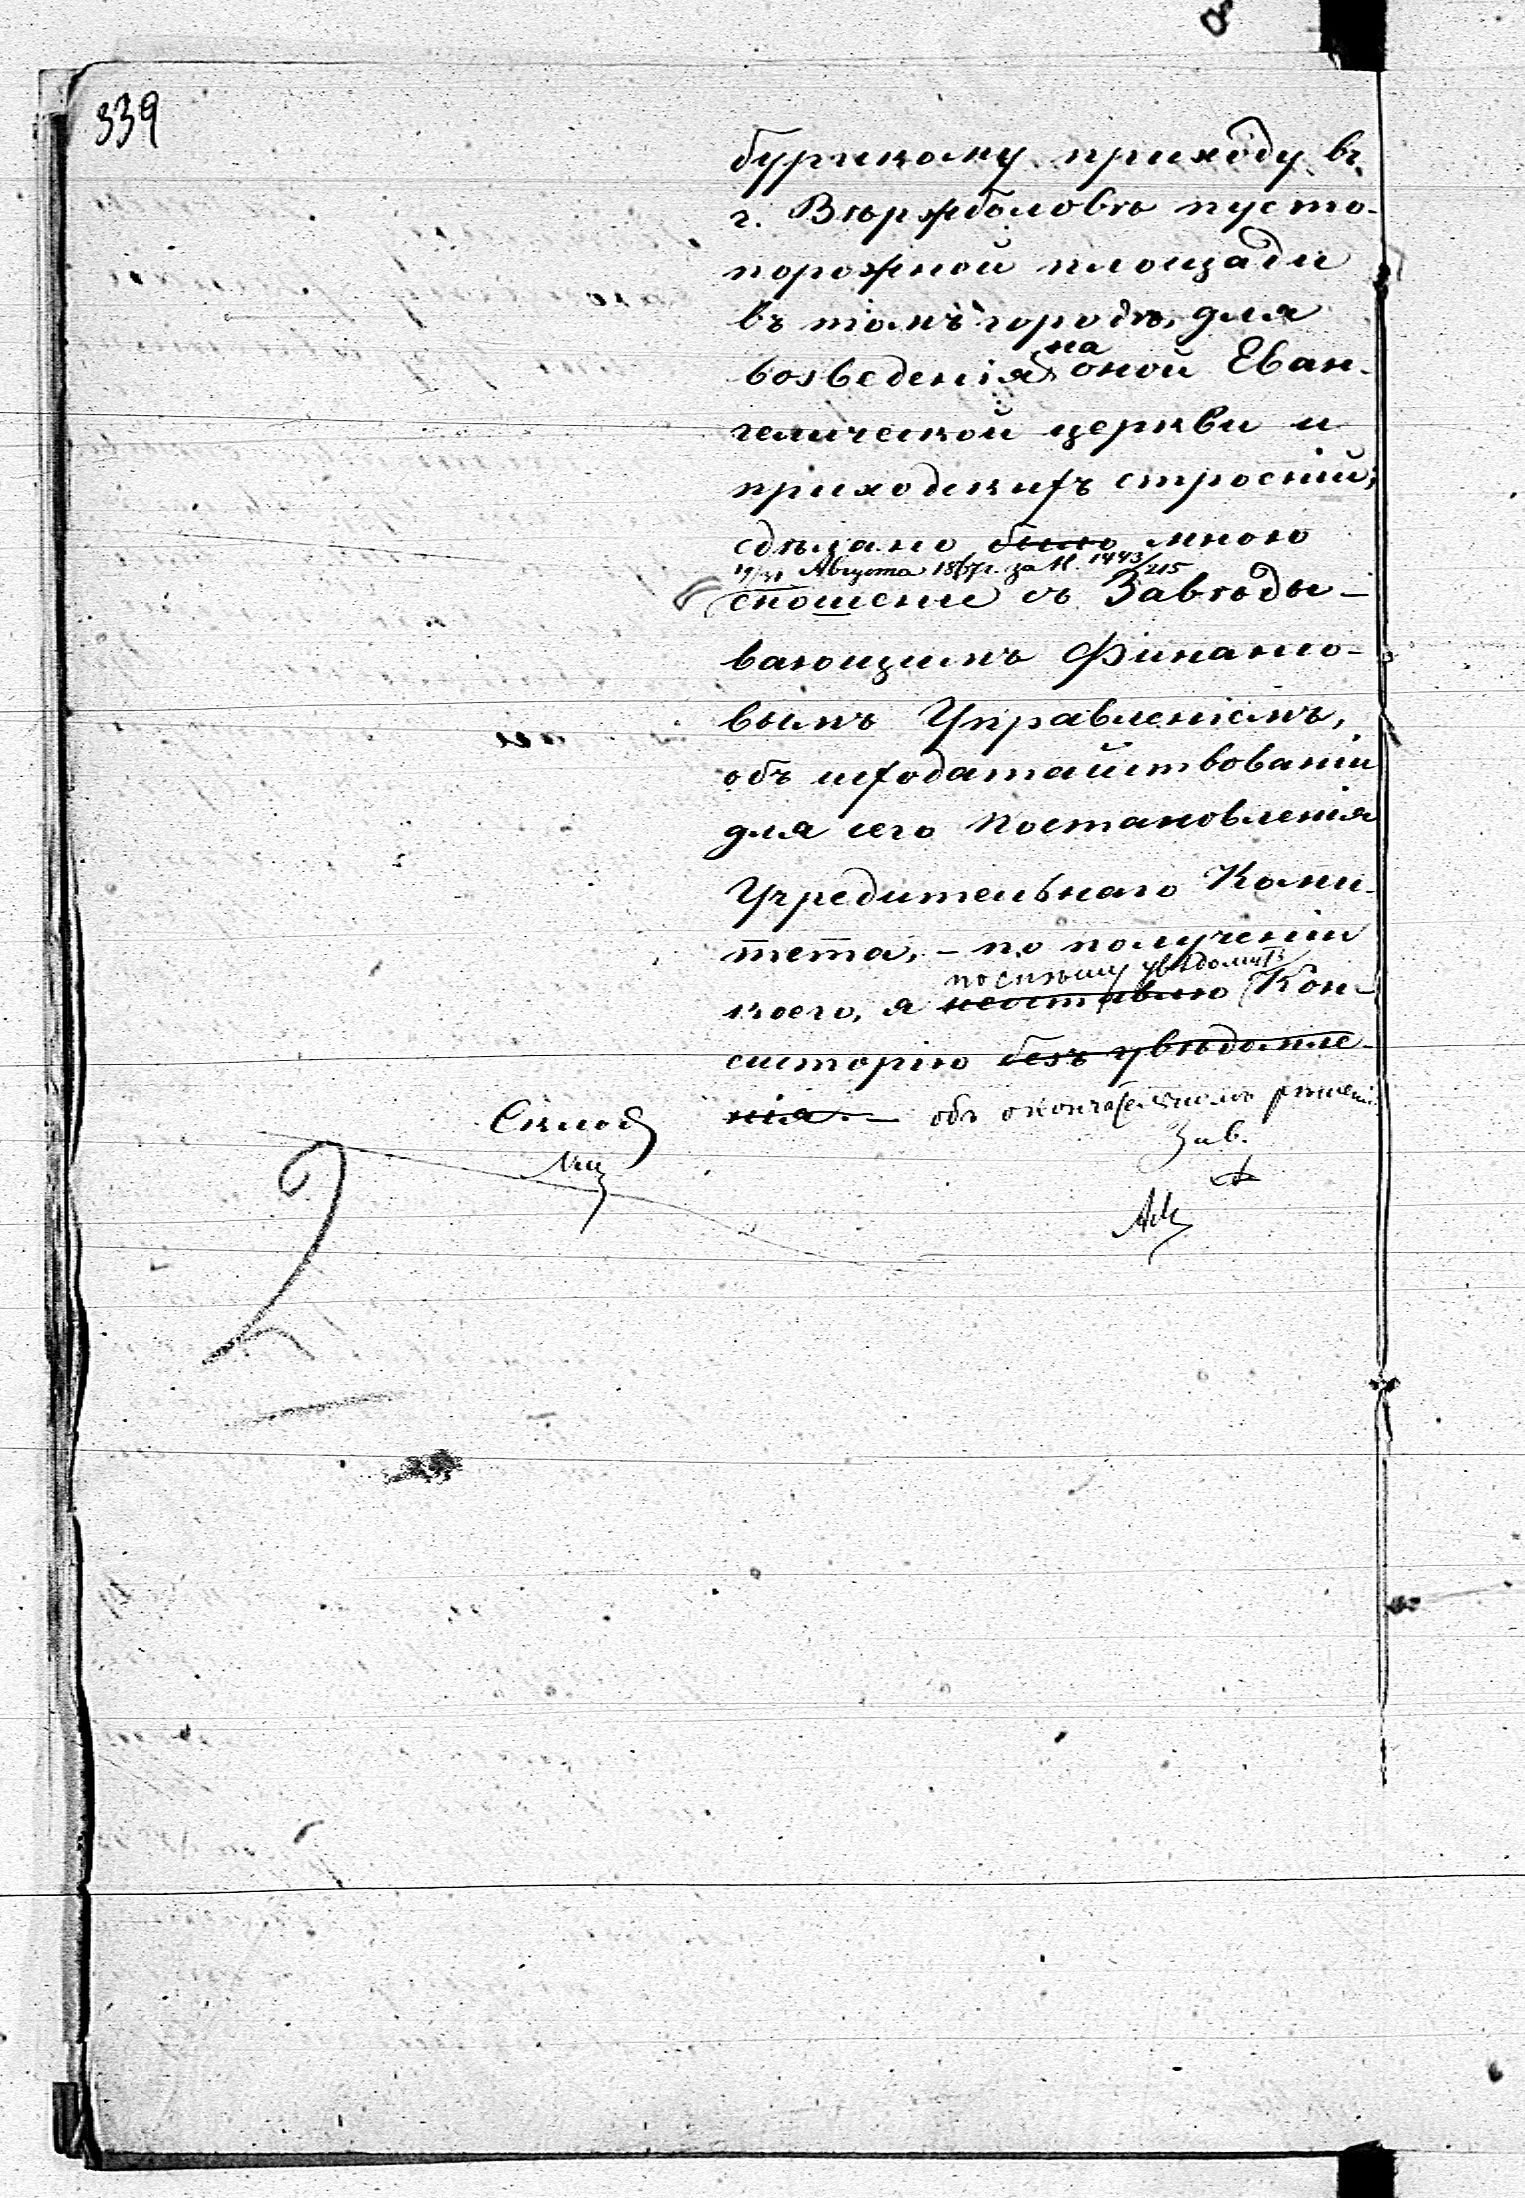 339
бургскому приходу въ
г. Вержболовѣ пусто-
порожной площади
въ томъ городѣ, для
возведенія на оной Еван-
гелической церкви и
приходскихъ строеній;
сдѣлано было мною
19/31 Августа 1867г. за № 1443/215
сношеніе съ Завѣды-
вающимъ Финансо-
вымъ Управленіемъ,
объ исходатайствованіи
для сего постановленія
Учредительнаго Коми-
тета, - по полученіи
поспѣшу увѣдомить
коего, я неоставлю Кон-
систорію безъ увѣдомле-
нія. - объ окончательномъ рѣшеніи.
Зав.